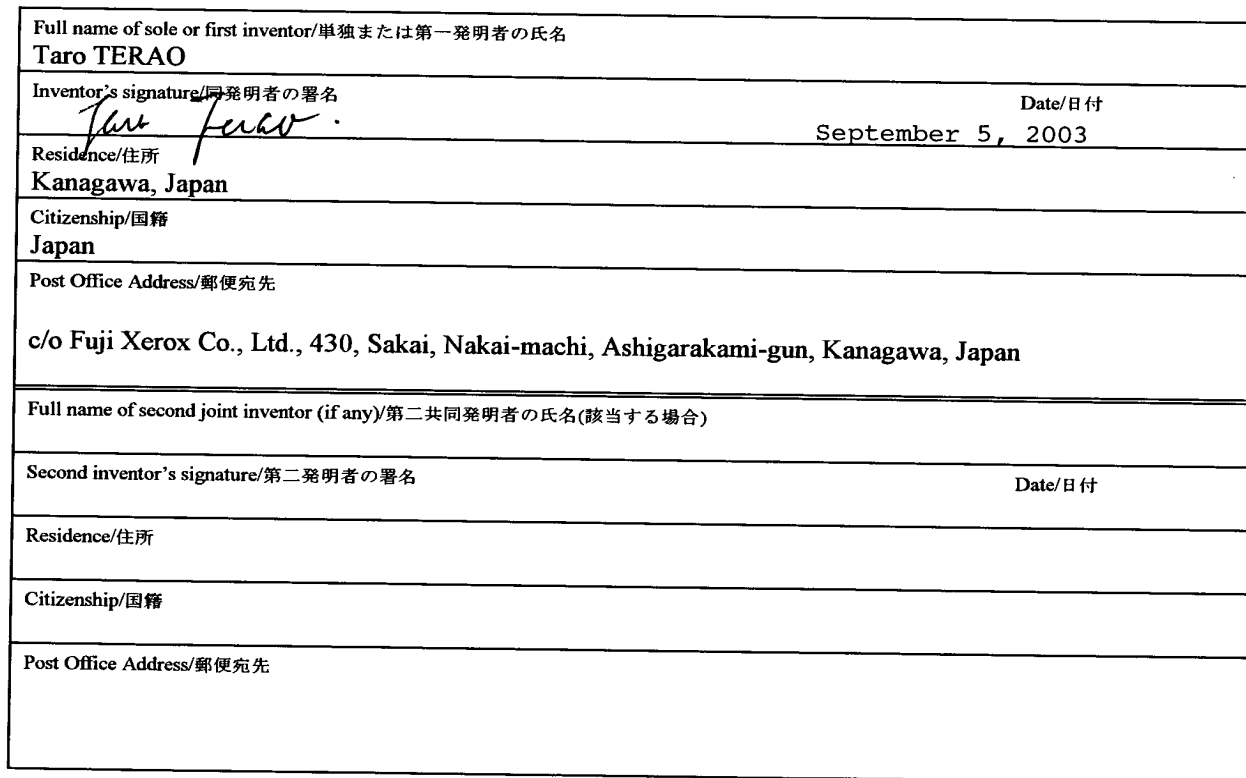 Full name of sole or first inventor/単独または第一発明者の氏名
Taro TERAO
Inventor's signature/同発明者の署名 Date/日付
Taro Terao. September 5, 2003
Residence/住所
Kanagawa, Japan
Citizenship/国籍
Japan
Post Office Address/郵便宛先
c/o Fuji Xerox Co., Ltd., 430, Sakai, Nakai-machi, Ashigarakami-gun, Kanagawa, Japan
Full name of second joint inventor (if any)/第二共同発明者の氏名(該当する場合)
Second inventor's signature/第二発明者の署名 Date/日付
Residence/住所
Citizenship/国籍
Post Office Address/郵便宛先